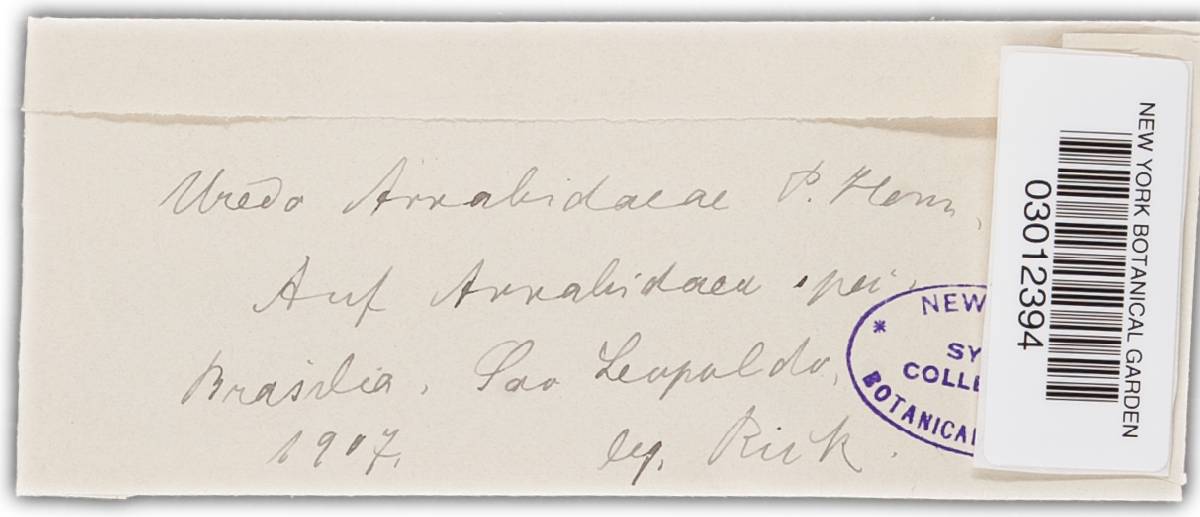 Uredo Arrabidaeae P. Henn.
Auf Arrabidaea spei.
Brasilia, Sao Leopoldo,
1907. leg. Rick.
* NEW
SY
COLLE
BOTANICA
NEW YORK BOTANICAL GARDEN
03012394